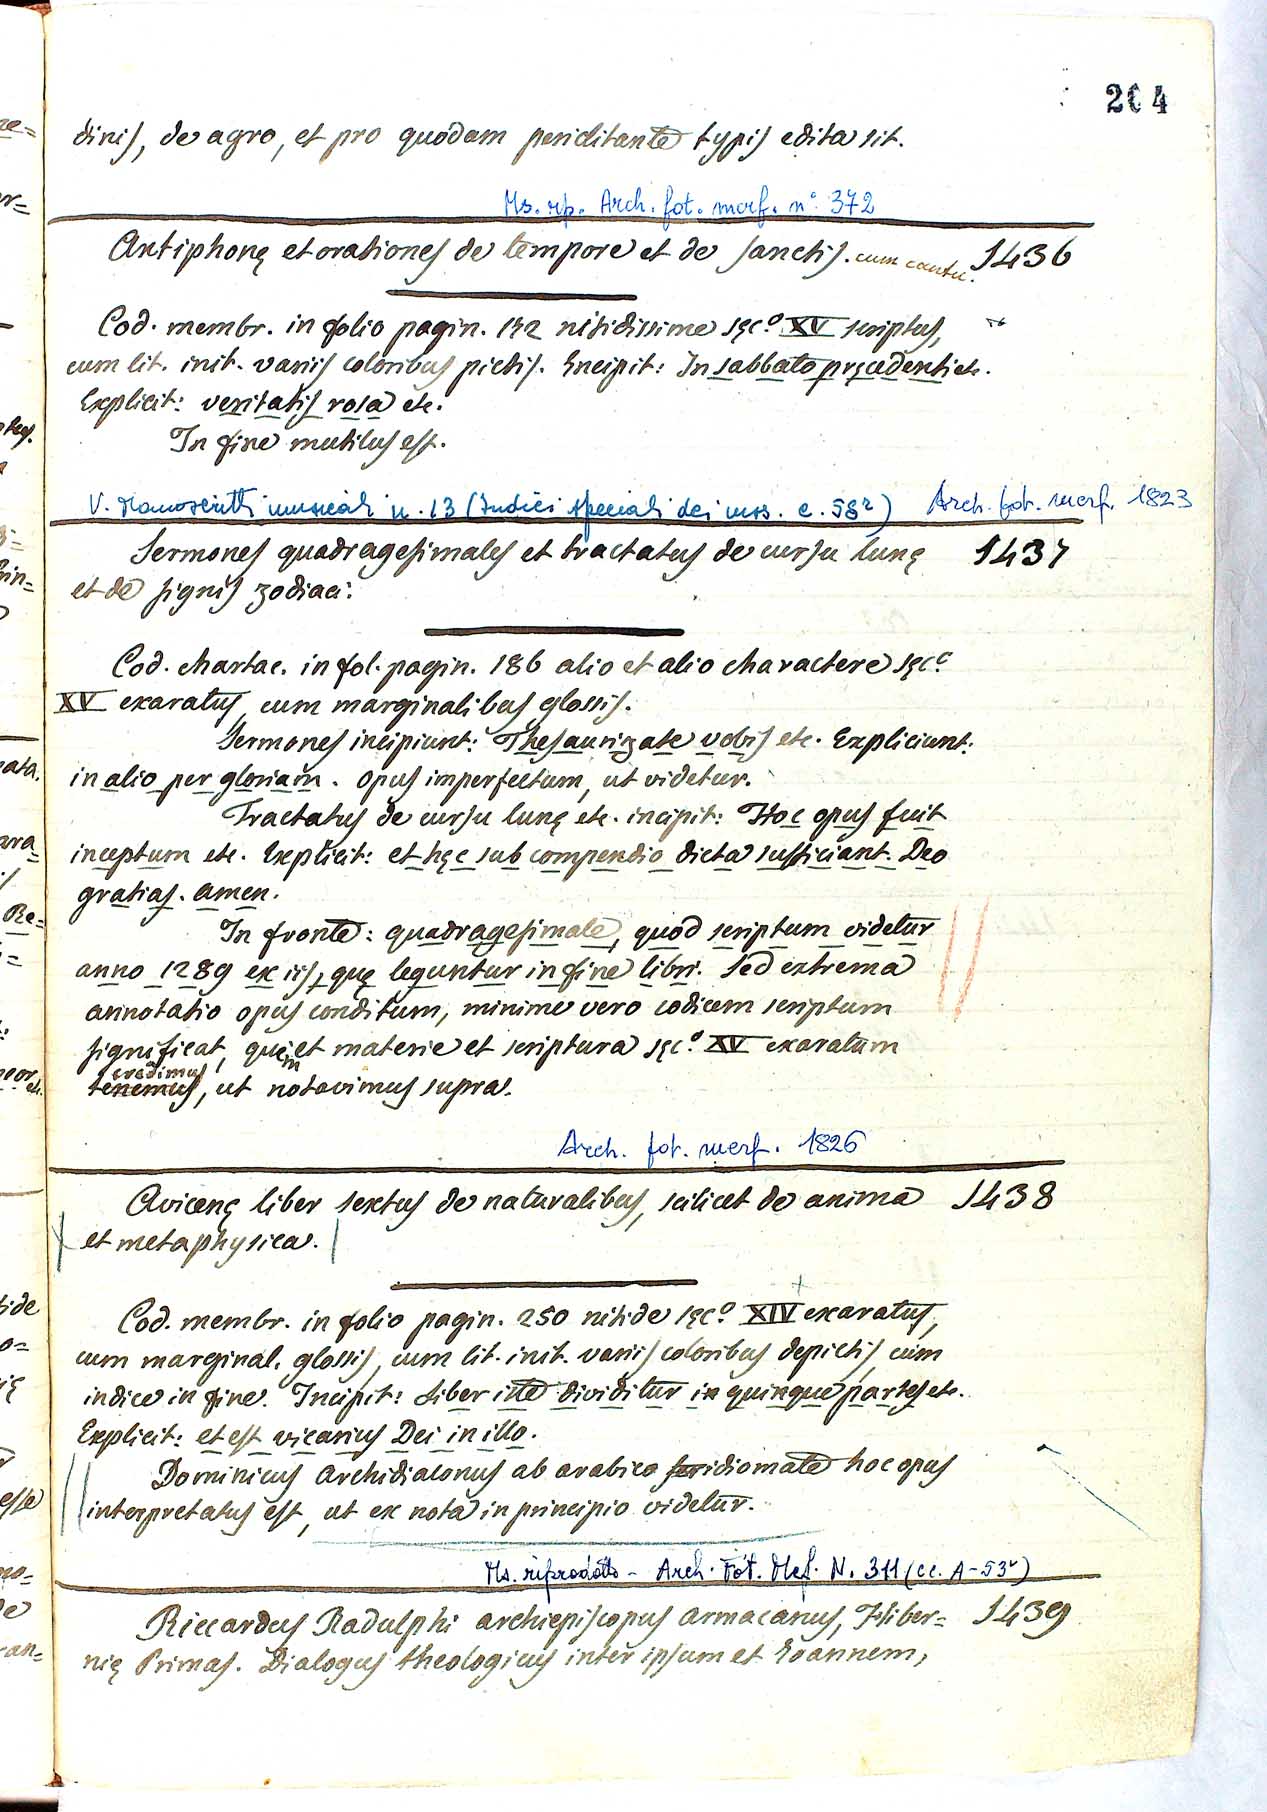 204
dinis, de agro, et pro quodam periclitante typis edita sit.
Ms. rip. Arch. fot. mcrf. n° 372
Antiphonę et orationes de tempore et de sanctis. cum cantu. 1436
Cod. membr. in folio pagin. 132 nitidissime sęc.º XV scriptus,
cum lit. init. variis coloribus pictis. Incipit: In sabbato pręcedenti etc.
Explicit: veritatis rosa etc.
In fine mutilus est.
V. Manoscritti musicali n. 13 (Indici speciali dei mss. c. 58r) Arch. fot. mcrf. 1823
Sermones quadragesimales et tractatus de cursu lunę 1437
et de signis zodiaci.
Cod. chartac. in fol. pagin. 186 alio et alio charactere sęc.º
XV exaratus, cum marginalibus glossis.
Sermones incipiunt: Thesaurizate vobis etc. Expliciunt:
in alio per gloriam. Opus imperfectum, ut videtur.
Tractatus de cursu lunę etc. incipit: Hoc opus fuit
inceptum etc. Explicit: et hęc sub compendio dicta sufficiant. Deo
gratias. Amen.
In fronte: quadragesimale, quod scriptum videtur
anno 1289 ex iis, quę leguntur in fine libri. Sed extrema
annotatio opus conditum, minime vero codicem scriptum
significat, quem et materie et scriptura sęc.º XV exaratum
credimus
tenemus, ut notavimus supra.
Arch. fot. mcrf. 1826
Avicenę liber sextus de naturalibus, scilicet de anima 1438
et metaphysica.
Cod. membr. in folio pagin. 250 nitide sęc.º XIV exaratus,
cum marginal. glossis, cum lit. init. variis coloribus depictis, cum
indice in fine. Incipit: Liber iste dividitur in quinque partes etc.
Explicit: et est vicarius Dei in illo.
Dominicus Archidiaconus ab arabico idiomate hoc opus
interpretatus est, ut ex nota in principio videtur.
Ms. riprodotto - Arch. Fot. Mcf. N. 311 (cc. A-53v)
Riccardus Radulphi archiepiscopus Armacanus, Hiber= 1439
nię Primas. Dialogus theologicus inter ipsum et Ioannem,